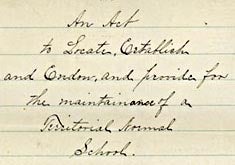 An Act
to Locate, Establish
and Endow, and provide for
the maintainance of a
Territorial Normal
School.